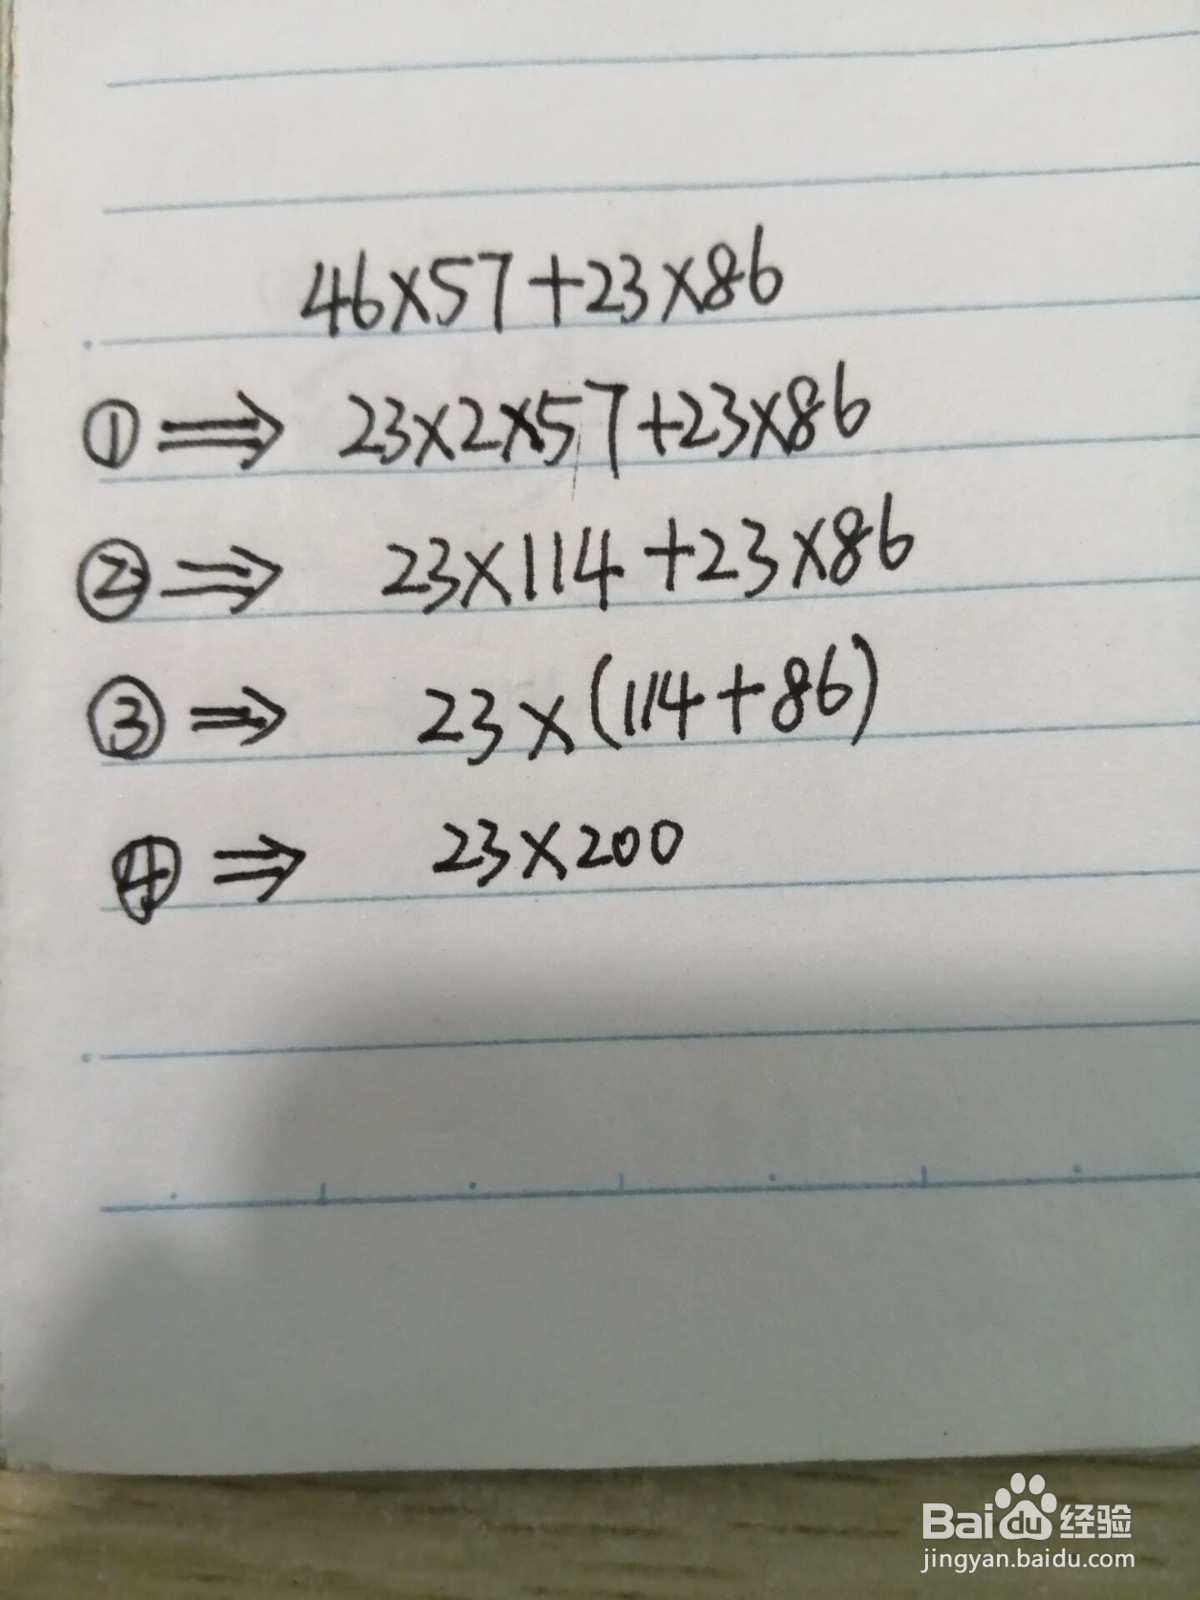 46×57+23×86
① ⇒ 23×2×57+23×86
② ⇒ 23×114+23×86
③ ⇒ 23×(114+86)
④ ⇒ 23×200
Baidu经验
jingyan.baidu.com